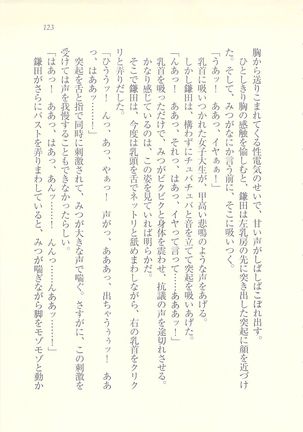 123
胸から送りこまれてくる性電気のせいで、甘い声がしばしばこぼれ出す。
ひとしきり胸の感触を愉しむと、鎌田は左乳房の先に突き出した突起に顔を近づけ
た。そして、みつがなにか言う前に、そこに吸いつく。
「うあッ！　あっ、イヤぁぁ！」
乳首に吸いつかれた女子大生が、甲高い悲鳴のような声をあげる。
しかし鎌田は、構わずにチュパチュパと音を立てて突起を吸いあげた。
「んあっ！　ああっ、それっ、はあっ、イヤって言って……あああッ！」
乳首を吸っただけで、みつがビクビクと身体を震わせ、抗議の声を途切れさせる。
かなり感じているのは、この姿を見ていれば明らかだ。
そこで鎌田は、今度は乳頭を舌でネットリと舐めまわしながら、右の乳首をクリク
リと弄りだした。
「ひううッ！　んっ、あっ、やぁっ！　声がっ、あああっ、出ちゃうぅぅッ！　ああ
っ、はああッ……！」
突起を舌と指で同時に刺激されて、みつが大きな声で喘ぐ。さすがに、この刺激を
受けては声を我慢することもできなかったらしい。
「はあっ！　ああっ、はあっ、あんッ……！　んんっ……んああッ……！」
鎌田がさらにバストを弄りまわしていると、みつが喘ぎながら脚をモゾモゾと動か